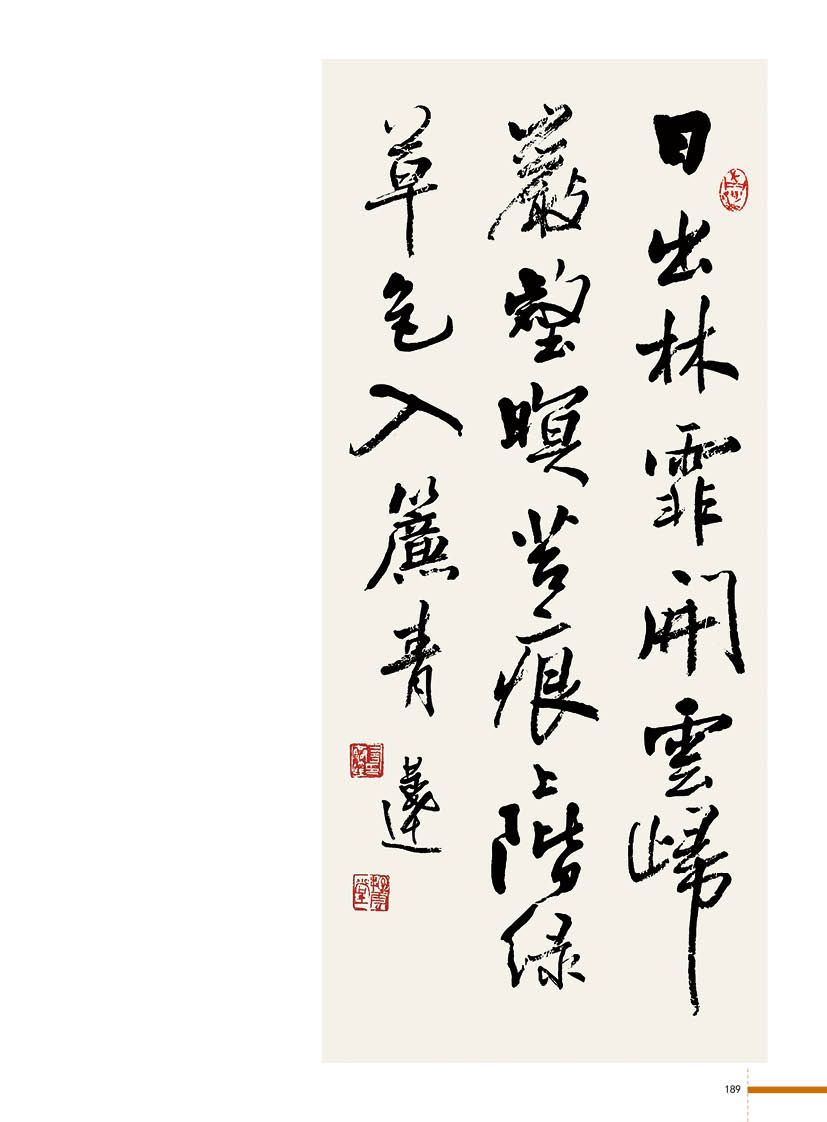 日出林霏開雲歸
巖壑暝苔痕上階绿
草色入簾青
189